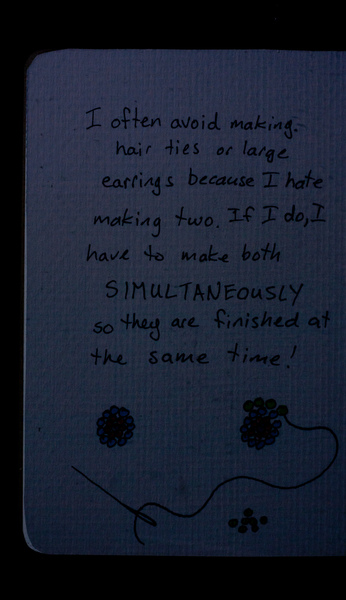 I often avoid making.
hair ties or large
earrings because I hate
making two. If I do, I
have to make both
SIMULTANEOUSLY
so they are finished at
the same time!